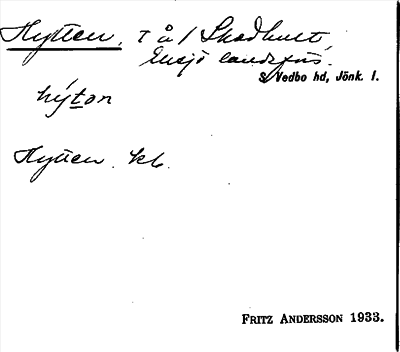 Hytten, T å / Skadhult,
Eksjö landsförs.
S. Vedbo hd, Jönk. l.
hy̗ton
Hytten. kb.
FRITZ ANDERSSON 1933.